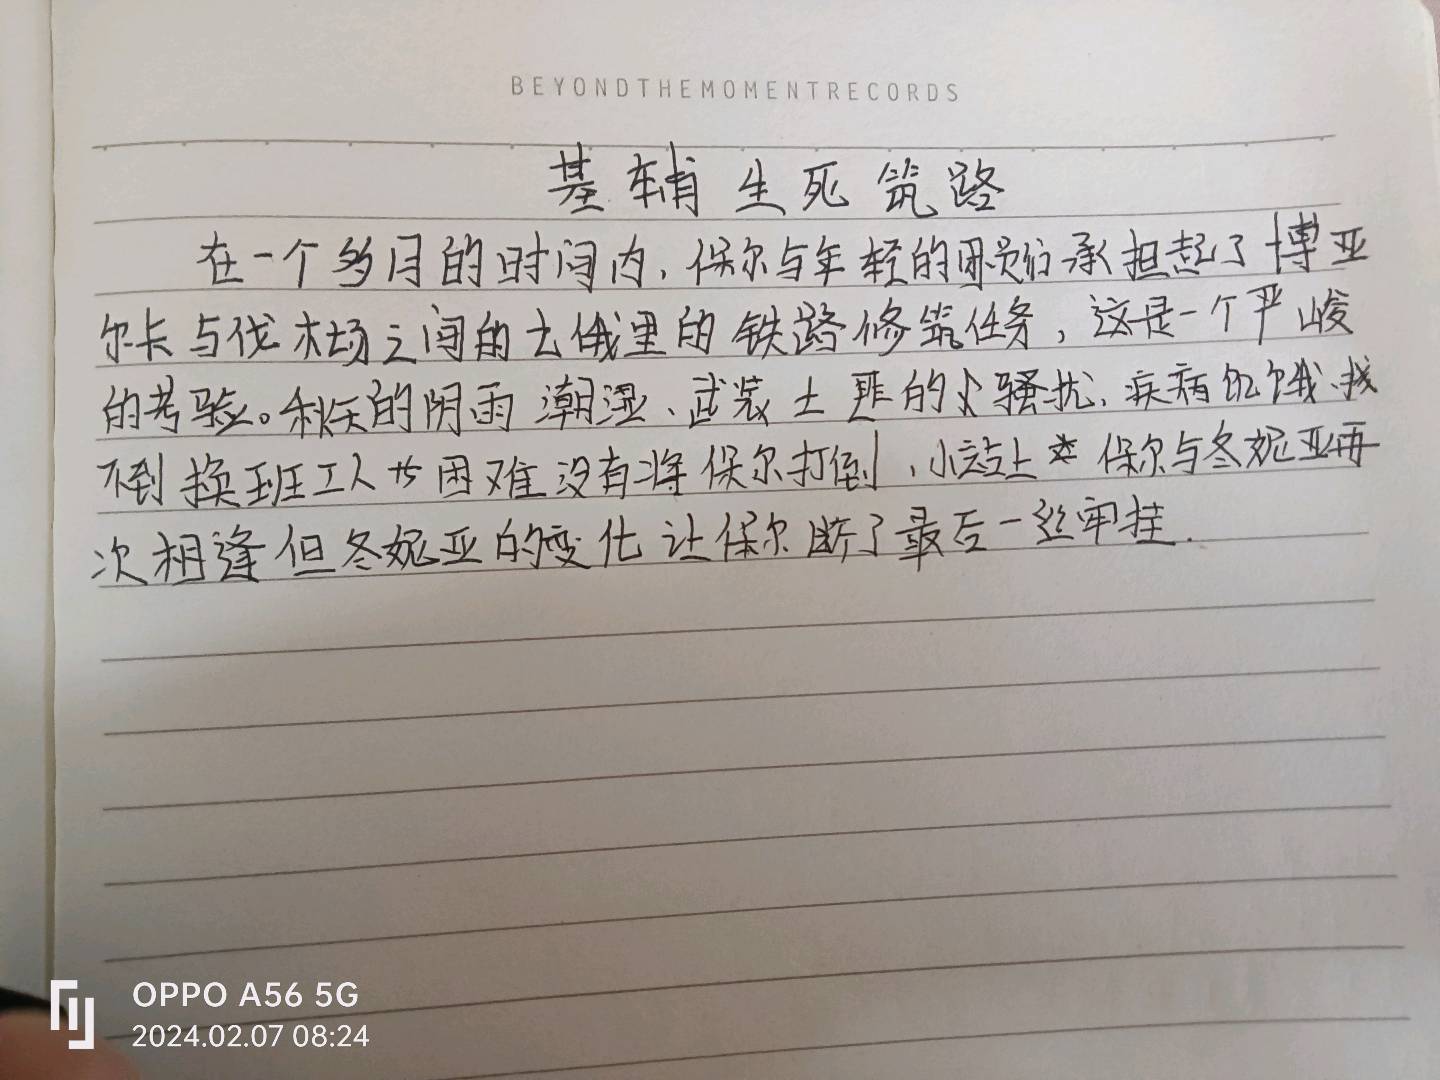 BEYONDTHEMOMENTRECORDS
基辅生死筑路
在一个多月的时间内，保尔与年轻的团员们承担起了博亚
尔卡与伐木场之间的七俄里的铁路修筑任务，这是一个严峻
的考验。秋天的阴雨潮湿、武装土匪的骚扰、疾病饥饿、找
不到换班工人等困难没有将保尔打倒，小站上保尔与冬妮亚再
次相逢但冬妮亚的变化让保尔断了最后一丝牵挂.
OPPO A56 5G
2024.02.07 08:24